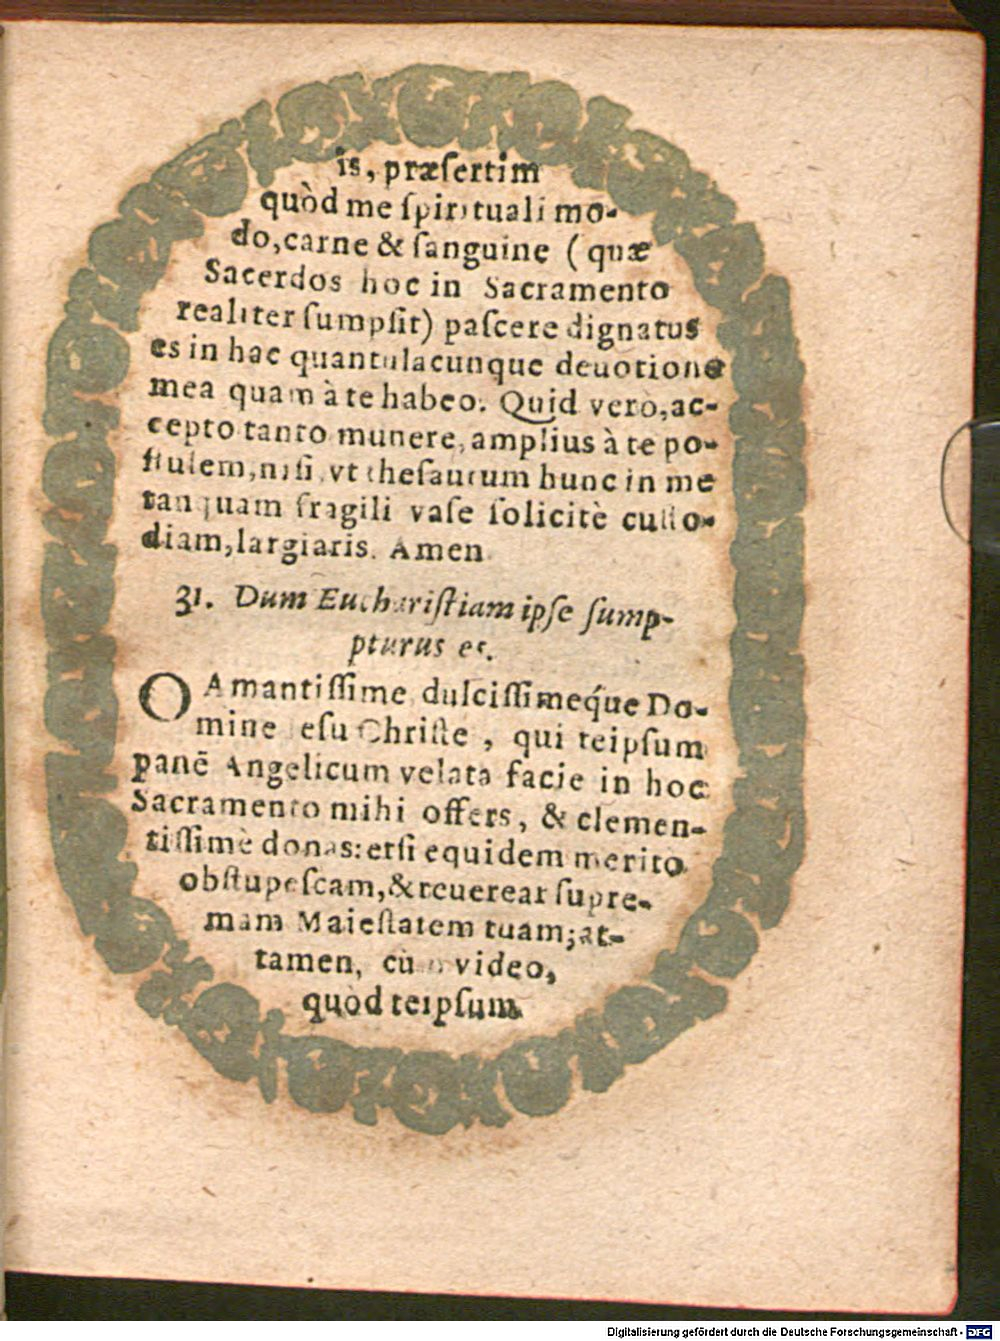 is, præſertim
quòd me ſpirituali mo-
do, carne & ſanguine (quæ
Sacerdos hoc in Sacramento
realiter ſumpſit) paſcere dignatus
es in hac quantulacunque deuotione
mea quam à te habeo. Quid verò, ac-
cepto tanto munere, amplius à te po-
ſtulem, niſi, vt theſaurum hunc in me
tanquam fragili vaſe ſolicitè cuſto-
diam, largiaris. Amen.
31. Dum Euchariſtiam ipſe ſump-
pturus es.
O Amantiſſime, dulciſſiméque Do-
mine Ieſu Chriſte, qui teipſum
panē Angelicum velata facie in hoc
Sacramento mihi offers, & clemen-
tiſſimè donas: etſi equidem meritò
obſtupeſcam, & reuerear ſupre-
mam Maieſtatem tuam; at-
tamen, cùm video,
quòd teipſum
Digitalisierung gefördert durch die Deutsche Forschungsgemeinschaft - DFG